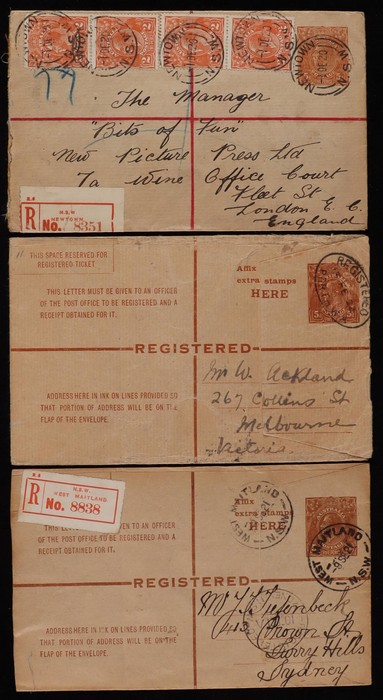 NEWTOWN
N.S.W
NEWTOWN
N.S.W
77
The Manager
"Bits of Fun"
New Picture Press Ltd
7a Wine Office Court
Fleet St
London E. C.
England
R
N.S.W
NEWTOWN
No. 8351
THIS SPACE RESERVED FOR
REGISTERED TICKET
Affix
extra stamps
HERE
REGISTERED
THIS LETTER MUST BE GIVEN TO AN OFFICER
OF THE POST OFFICE TO BE REGISTERED AND A
RECEIPT OBTAINED FOR IT.
REGISTERED
Mr W. Ackland
267 Collins St
Melbourne
Victoria
ADDRESS HERE IN INK ON LINES PROVIDED SO
THAT PORTION OF ADDRESS WILL BE ON THE
FLAP OF THE ENVELOPE.
R
N.S.W
WEST MAITLAND.
No. 8838
Affix
extra stamps
HERE
WEST MAITLAND
N.S.W
WEST MAITLAND
N.S.W
THIS LETTER
OF THE POST OFFICE TO BE REGISTERED AND A
RECEIPT OBTAINED FOR IT.
REGISTERED
413 Crown St
Surry Hills
Sydney
ADDRESS HERE IN INK ON LINES PROVIDED SO
THAT PORTION OF ADDRESS WILL BE ON THE
FLAP OF THE ENVELOPE.